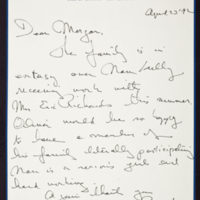 April 23 '92
Dear Morgan,
The family is in
ecstasy over Nan finally
receiving work with
Mrs Richards this summer
would be so happy
to have a member of
his family literally participating
Nan is a serious girl and
hard working
thank you